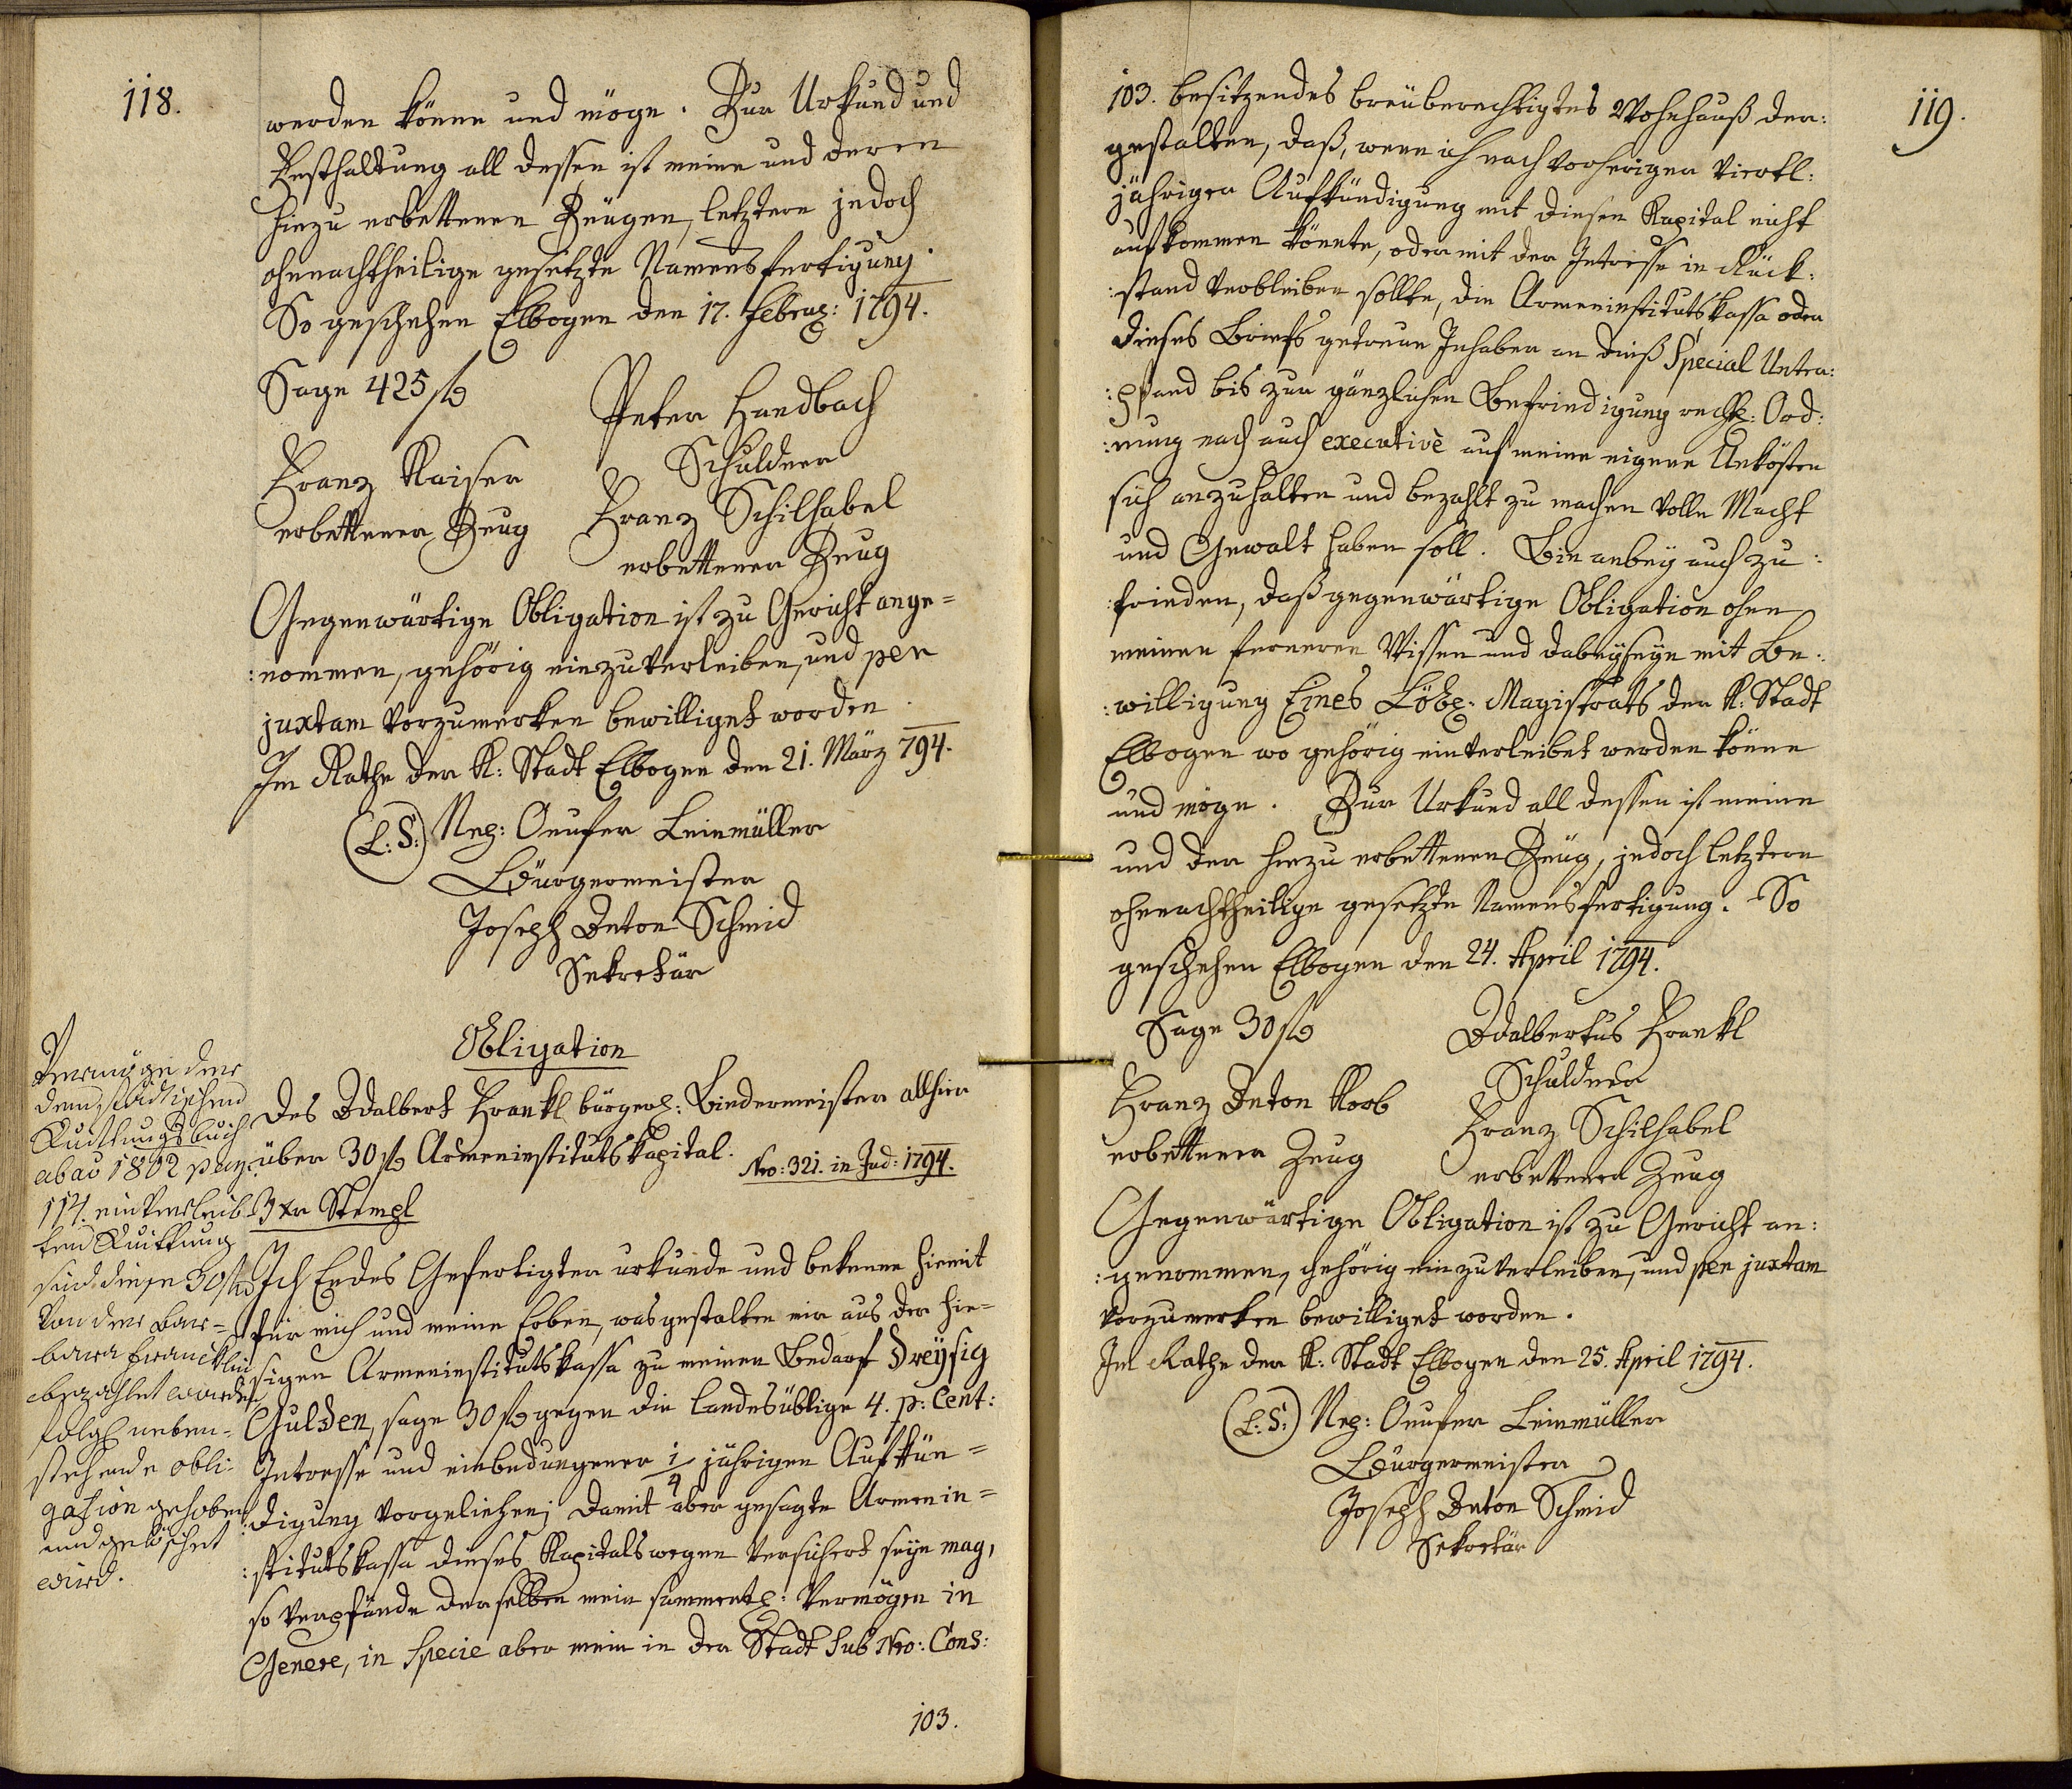 118.
werden könne und möge. Zur Urkund und
Festhaltung all dessen ist meine und deren
hiezu erbettenen Zeugen, letztern jedoch
ohnnachtheilige gesetzte Namensfertigung.
So geschehen Elbogen den 17. Febru: 1794.
Sage 425 f
Peter Handbach
Schuldner
Franz Kaiser
erbettener Zeug
Franz Schilhabel
erbettener Zeug
Gegenwärtige Obligation ist zu Gericht ange=
:nommen, gehörig einzuverleiben, und per
juxtam vorzumerken bewilliget worden.
Im Rathe der K: Stadt Elbogen den 21. März 794.
(L:S:) Nep: Onufer Leinmüller
Bürgermeister
Joseph Anton Schmid
Sekretär
Obligation
Des Adalbert Frankl bürgerl: Bindermeister allhier
über 30 f Armeninstitutskapital.
Nro: 321. in Jud: 1794.
3 xr Stempl
Ich Endes Gefertigter urkunde und bekenne hiemit
für mich und meine Erben, wasgestalten mir aus der hie=
sigen Armeninstitutskassa zu meinen Bedarf Dreÿsig
Gulden, sage 30 f gegen die landesüblige 4. p: Cent:
Intresse und einbedungener 1/4 jährigen Aufkün=
:digung vorgeliehen; damit aber gesagte Armenin=
:stitutskassa dieses Kapitals wegen versichert seÿn mag,
so verpfände derselben mein sammentl: Vermögen in
Genere, in Specie aber mein in der Stadt sub Nro: Cons:
103.
Vermög der
dem städtischen
Quittungsbuch
ab ao 1802 pag:
114. einverleib
ten Quittung
sind diese 30 f
von der Bar=
bara Francklin
bezahlet worden
folgl neben=
stehende obli=
gation gehoben
und gelöschet
wird.
119.
103. besitzendes breuberechtigtes Wohnhauß der:
gestalten, daß, wenn ich nach vorheriger viertl:
jähriger Aufkündigung mit diesen Kapital nicht
aufkommen könnte, oder mit der Intresse in Rück:
:stand verbleiben sollte, die Armeninstitutskassa oder
dieses Briefs getreue Inhaber an dieß Special Unter:
:pfand bis zur gänzlichen Befriedigung rechtl: Ord:
:nung nach auch executivè auf meine eigene Unkösten
sich anzuhalten und bezahlt zu machen volle Macht
und Gewalt haben soll. Bin anbeÿ auch zu:
:frieden, daß gegenwärtige Obligation ohne
meinen ferneren Wissen und dabeÿseÿn mit Be:
:willigung Eines Löbl: Magistrats der K: Stadt
Elbogen wo gehörig einverleibet werden könne
und möge. Zur Urkund all dessen ist meine
und der hiezu erbettenen Zeug, jedoch letztern
ohnnachtheilige gesetzte Namensfertigung. So
geschehen Elbogen den 24. April 1794.
Sage 30 f
Adalbertus Frankl
Schuldner
Franz Anton Korb
erbettener Zeug
Franz Schilhabel
erbettener Zeug
Gegenwärtige Obligation ist zu Gericht an:
:genommen, gehörig einzuverleiben, und per juxtam
vorzumerken bewilliget worden.
Im Rathe der K: Stadt Elbogen den 25. April 1794.
(L:S:) Nep: Onufer Leinmüller
Bürgermeister
Joseph Anton Schmid
Sekretär